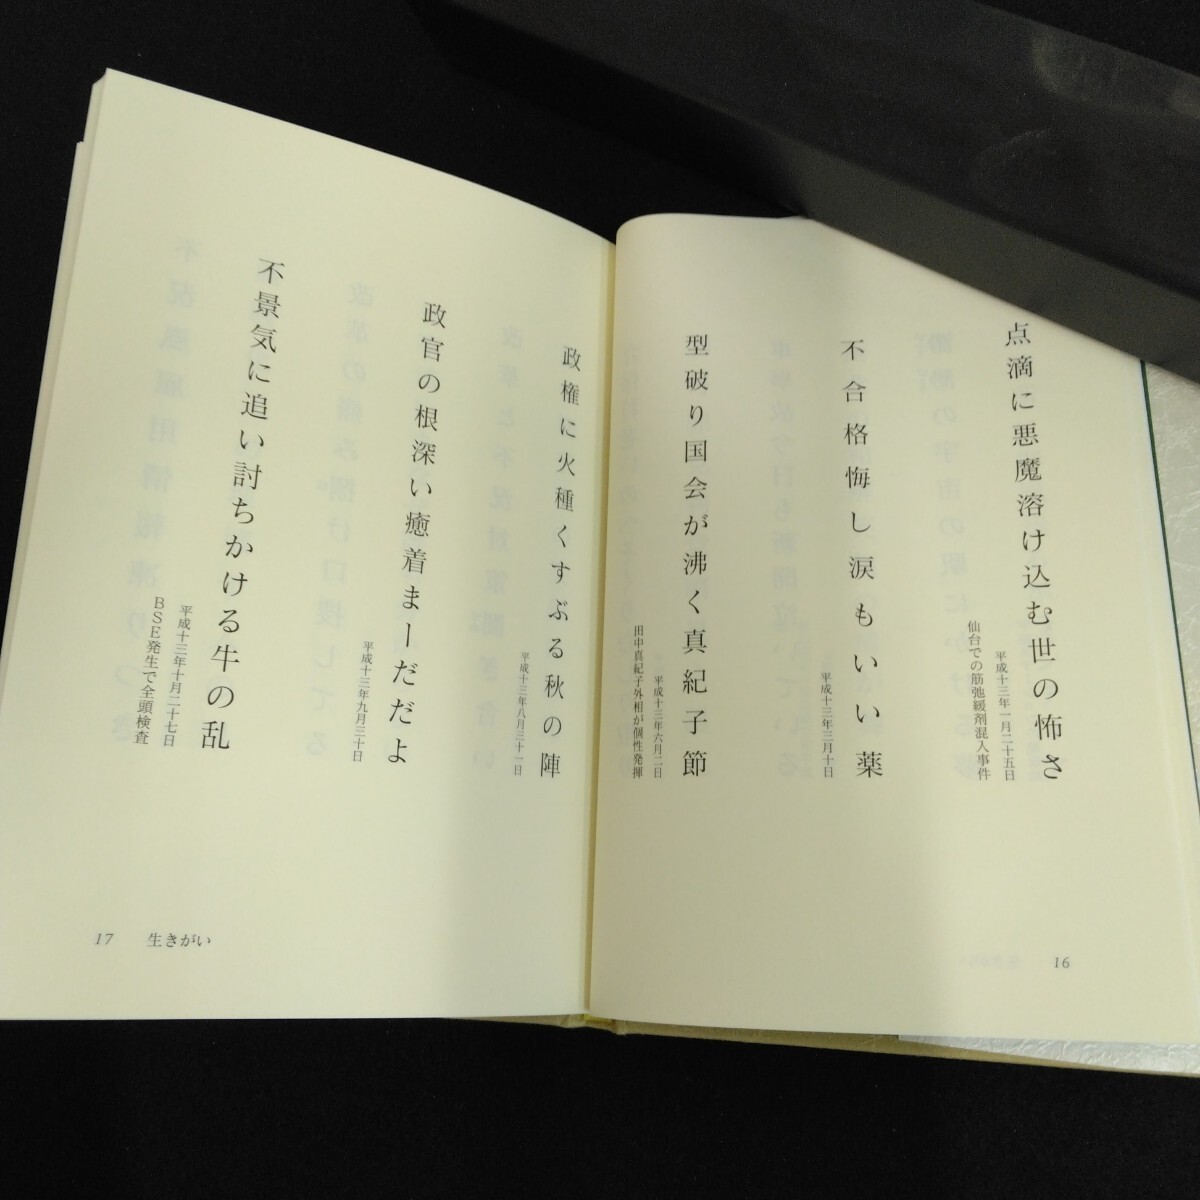 点滴に悪魔溶け込む世の怖さ
平成十三年一月二十五日
仙台での筋弛緩剤混入事件
不合格悔し涙もいい薬
平成十三年三月十日
型破り国会が沸く真紀子節
平成十三年六月二日
田中真紀子外相が個性発揮
16
政権に火種くすぶる秋の陣
平成十三年八月三十一日
政官の根深い癒着まーだだよ
平成十三年九月三十日
不景気に追い討ちかける牛の乱
平成十三年十月二十七日
BSE発生で全頭検査
17 生きがい